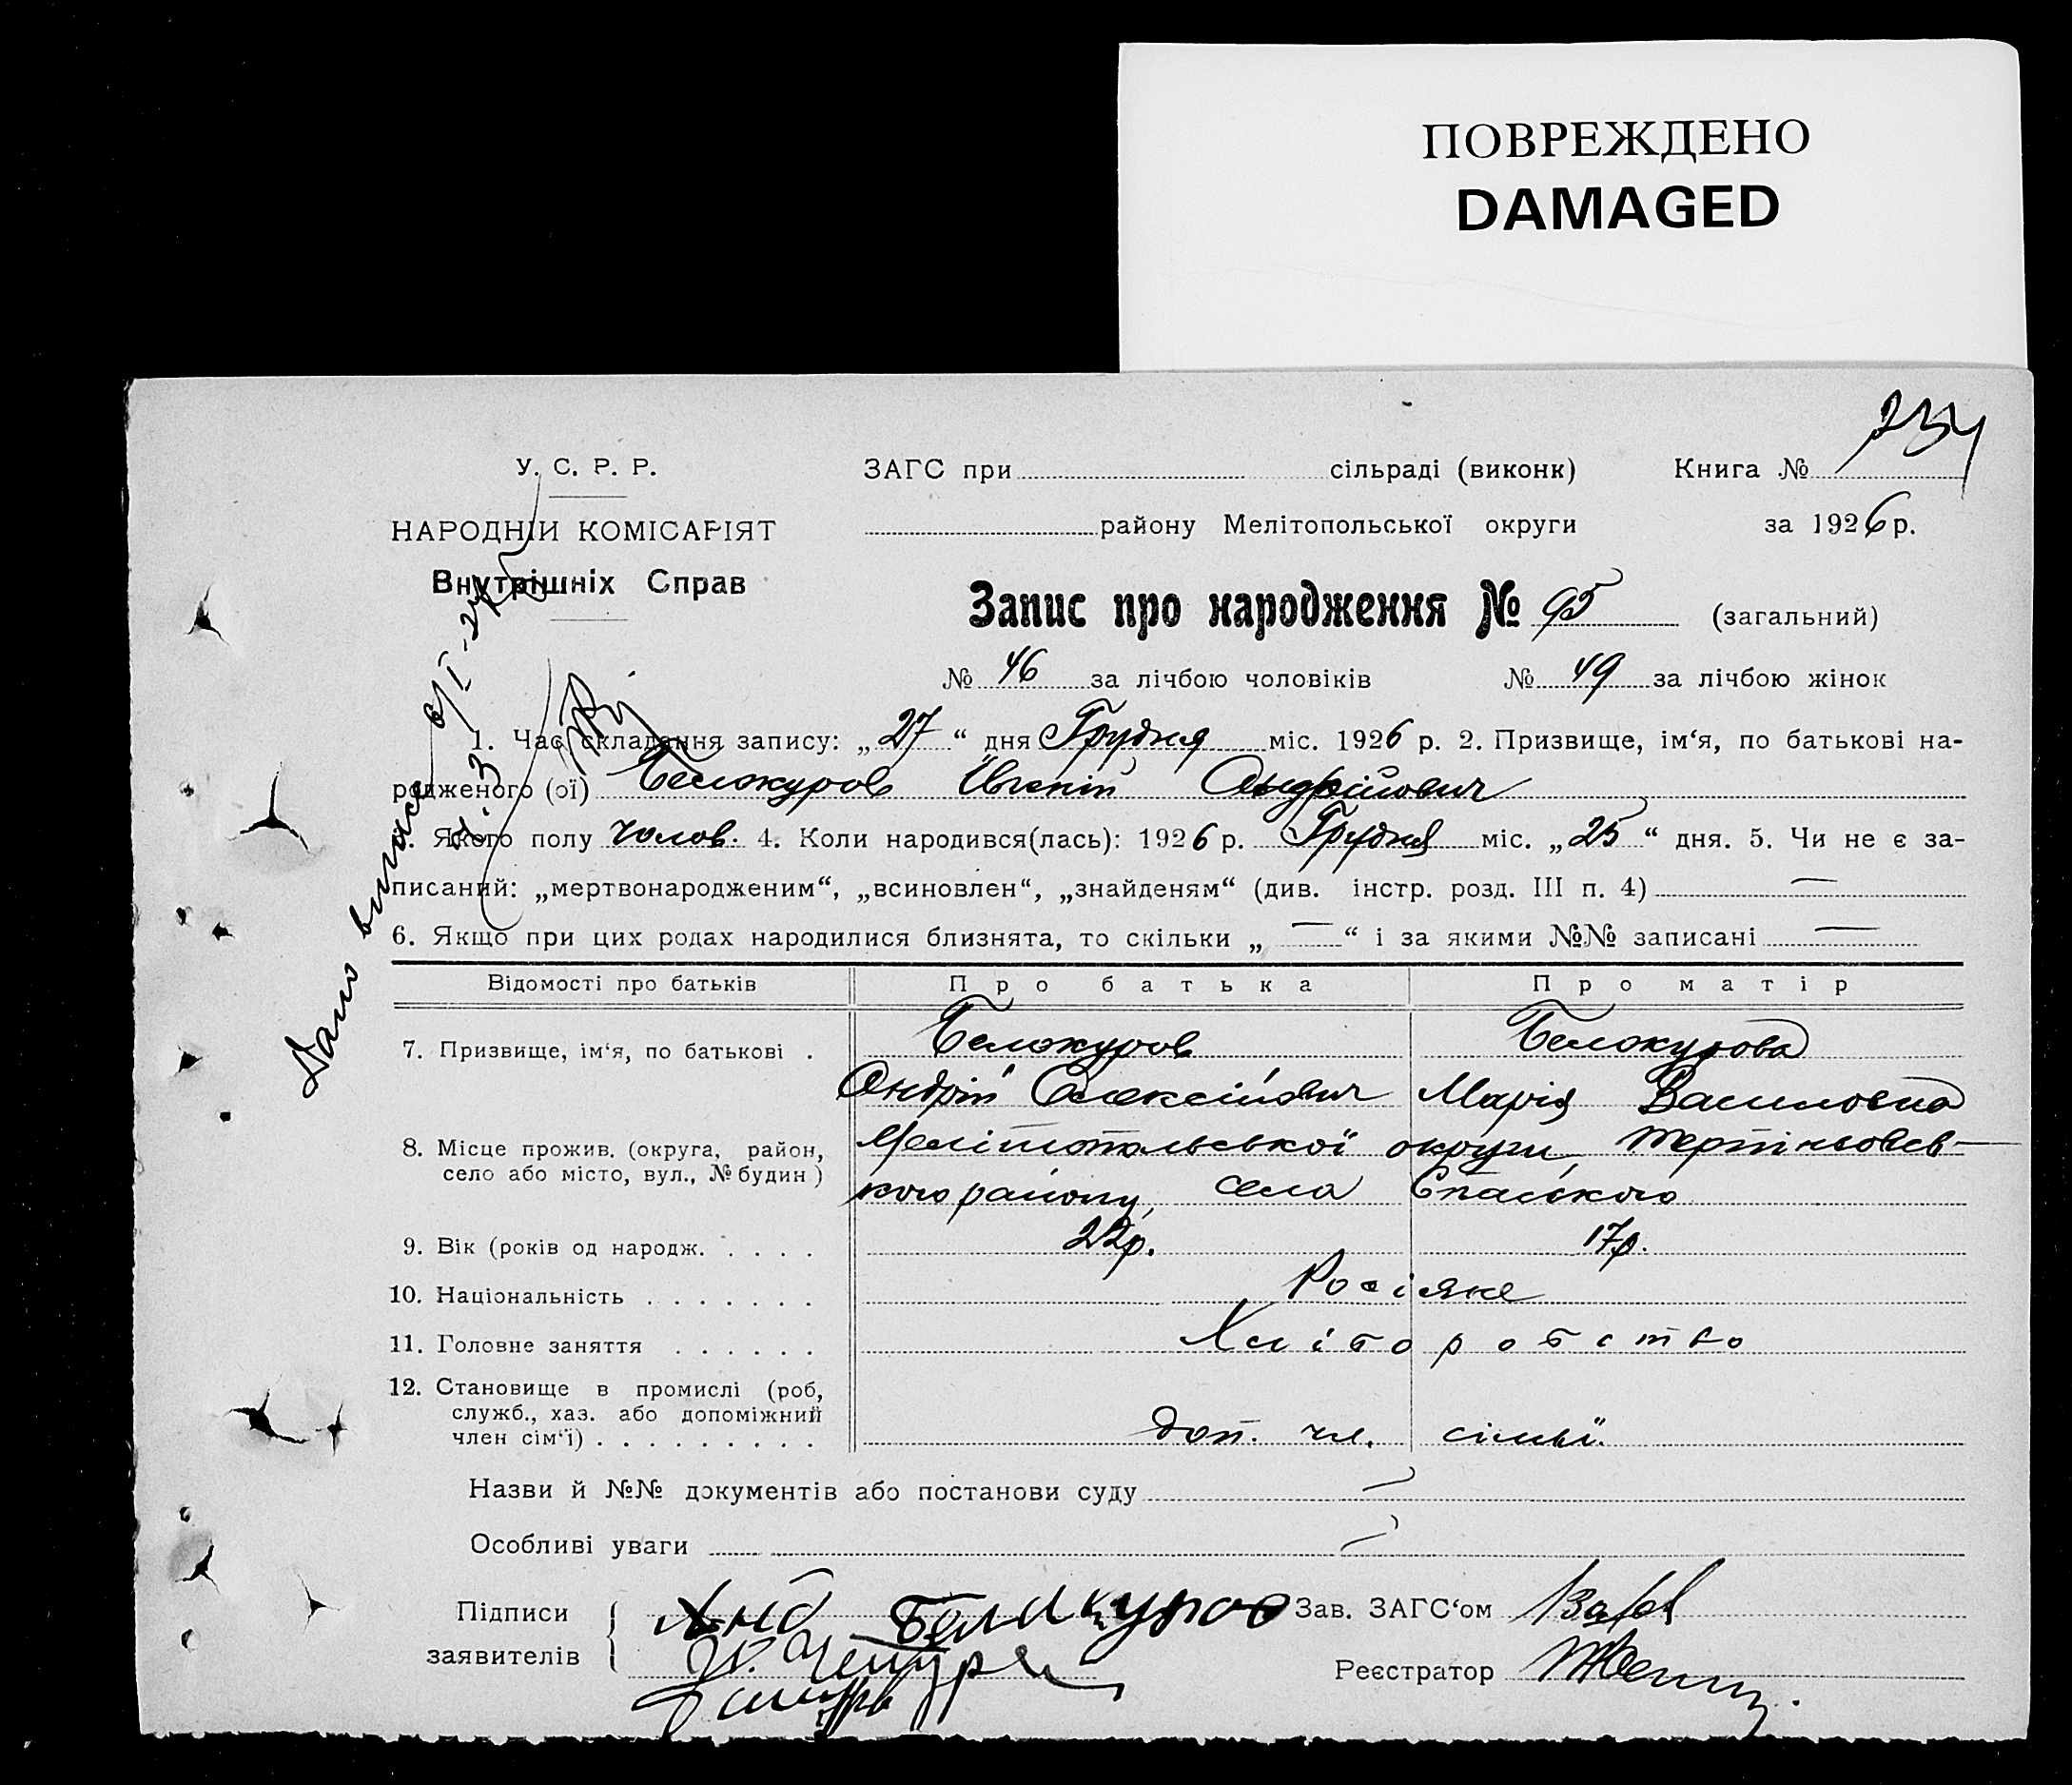 ПОВРЕЖДЕНО
DAMAGED
734
У. С. Р. Р.
НАРОДНІЙ КОМІСАРІЯТ
Внутрішніх Справ
ЗАГС при сільраді (виконк) Книга №
району Мелітопольської округи за 1926 р.
Запис про народження № 95 (загальний)
№ 46 за лічбою чоловіків № 49 за лічбою жінок
1. Час складання запису: „27“ дня Грудня міс. 1926 р. 2. Призвище, ім‘я, по батькові на-
родженого (ої) Белокуров Євгеній Андрійович
3. Якого полу чолов. 4. Коли народився(лась): 1926 р. Грудня міс. „25“ дня. 5. Чи не є за-
писаний: „мертвонародженим“, „всиновлен“, „знайденям“ (див. інстр. розд. III п. 4) —
6. Якщо при цих родах народилися близнята, то скільки „ — “ і за якими №№ записані —
Відомості про батьків Про батька Про матір
7. Призвище, ім‘я, по батькові . Белокуров Белокурова
Андрій Олексійович Марія Василовна
8. Місце прожив. (округа, район, село або місто, вул., № будин) Мелітопольської округи,
кого району, села Спаського
9. Вік (років од народж. . . . . 22р. 17р.
10. Національність . . . . . . . Росіяне
11. Головне заняття . . . . . . Хліборобство
12. Становище в промислі (роб,
служб., хаз. або допоміжний
член сім‘ї) . . . . . . . . . Доп. чл. сімьї.
Назви й №№ документів або постанови суду —
Особливі уваги —
Підписи заявителів Анд Белакуров
Зав. ЗАГС‘ом
Реєстратор
Дано виписа